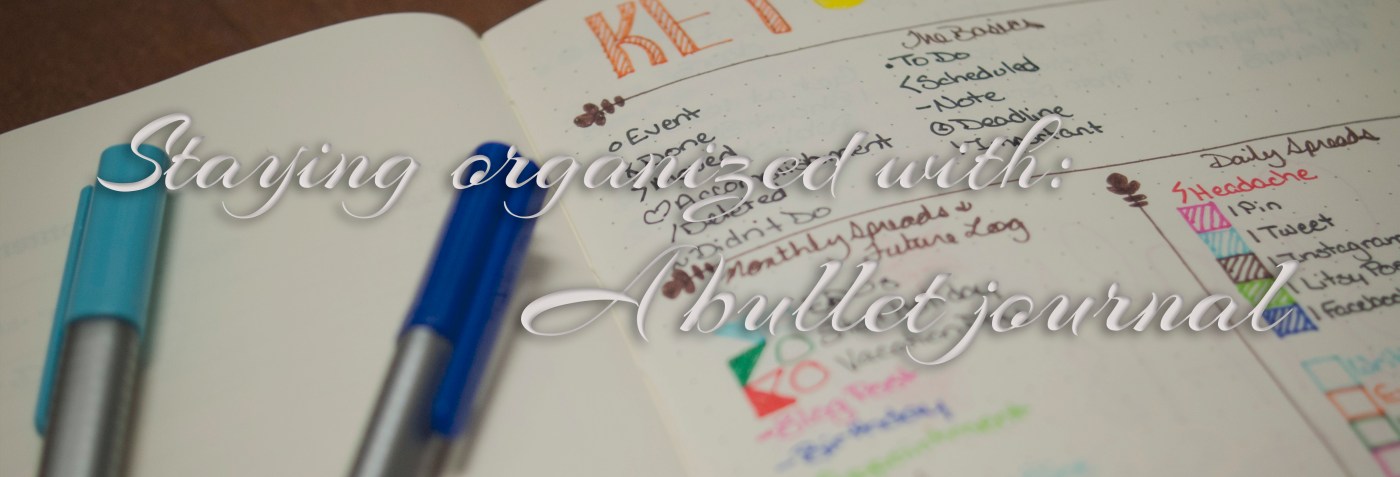 Staying organized with:
A bullet journal
KEY
The Basics
•To Do
<Scheduled
-Note
Deadline
!Important
o Event
Done
Moved
♡Accomplishment
/Deleted
~Didn't Do
Monthly Spreads &
Future Log
Vacation
-Blog Post
-Birthday
Appointment
Daily Spreads
Headache
1 Pin
1 Tweet
1 Instagram
1 Litsy Pos
1 Facebo